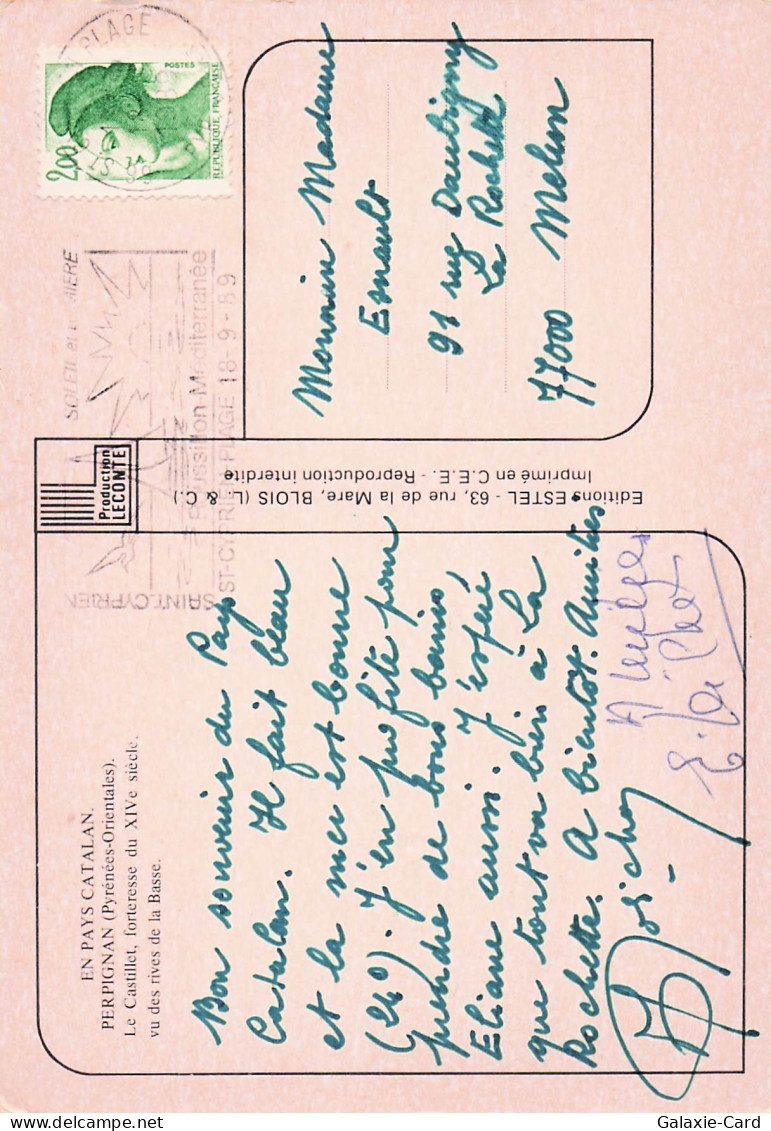 EN PAYS CATALAN.
PERPIGNAN (Pyrénées-Orientales).
Le Castillet, forteresse du XIVe siècle,
vu des rives de la Basse.
Bon souvenir du Pays
Catalan. Il fait beau
et la mer est bonne
(24°). J'en profite pour
prendre de bons bains
Eliane aussi. J'espère
que tout va bien à La
Rochette. A bientôt. Amitiés
Production
LECONTE
Editions ESTEL - 63, rue de la Mare, BLOIS (L. & C.)
Imprimé en C.E.E. - Reproduction interdite
SAINT-CYPRIEN
SOLEIL et LUMIERE
Roussillon Méditerranée
ST-CYPRIEN PLAGE 18-9-89
PLAGE
2,00
POSTES
REPUBLIQUE FRANÇAISE
Monsieur Madame
Esnault
91 rue Daubigny
La Rochette
77000 Melun
Galaxie-Card